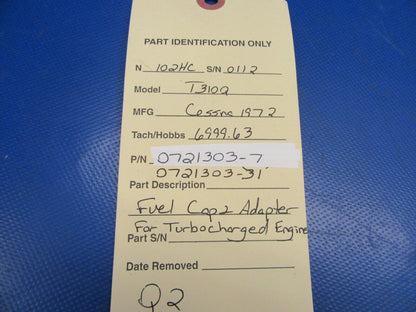 PART IDENTIFICATION ONLY
N 102HC S/N 0112
Model T310Q
MFG Cessna 1972
Tach/Hobbs 6999.63
P/N 0721303-7
0721303-31
Part Description
Fuel Cap2 Adapter
For Turbocharged Engine
Part S/N
Date Removed
Q2